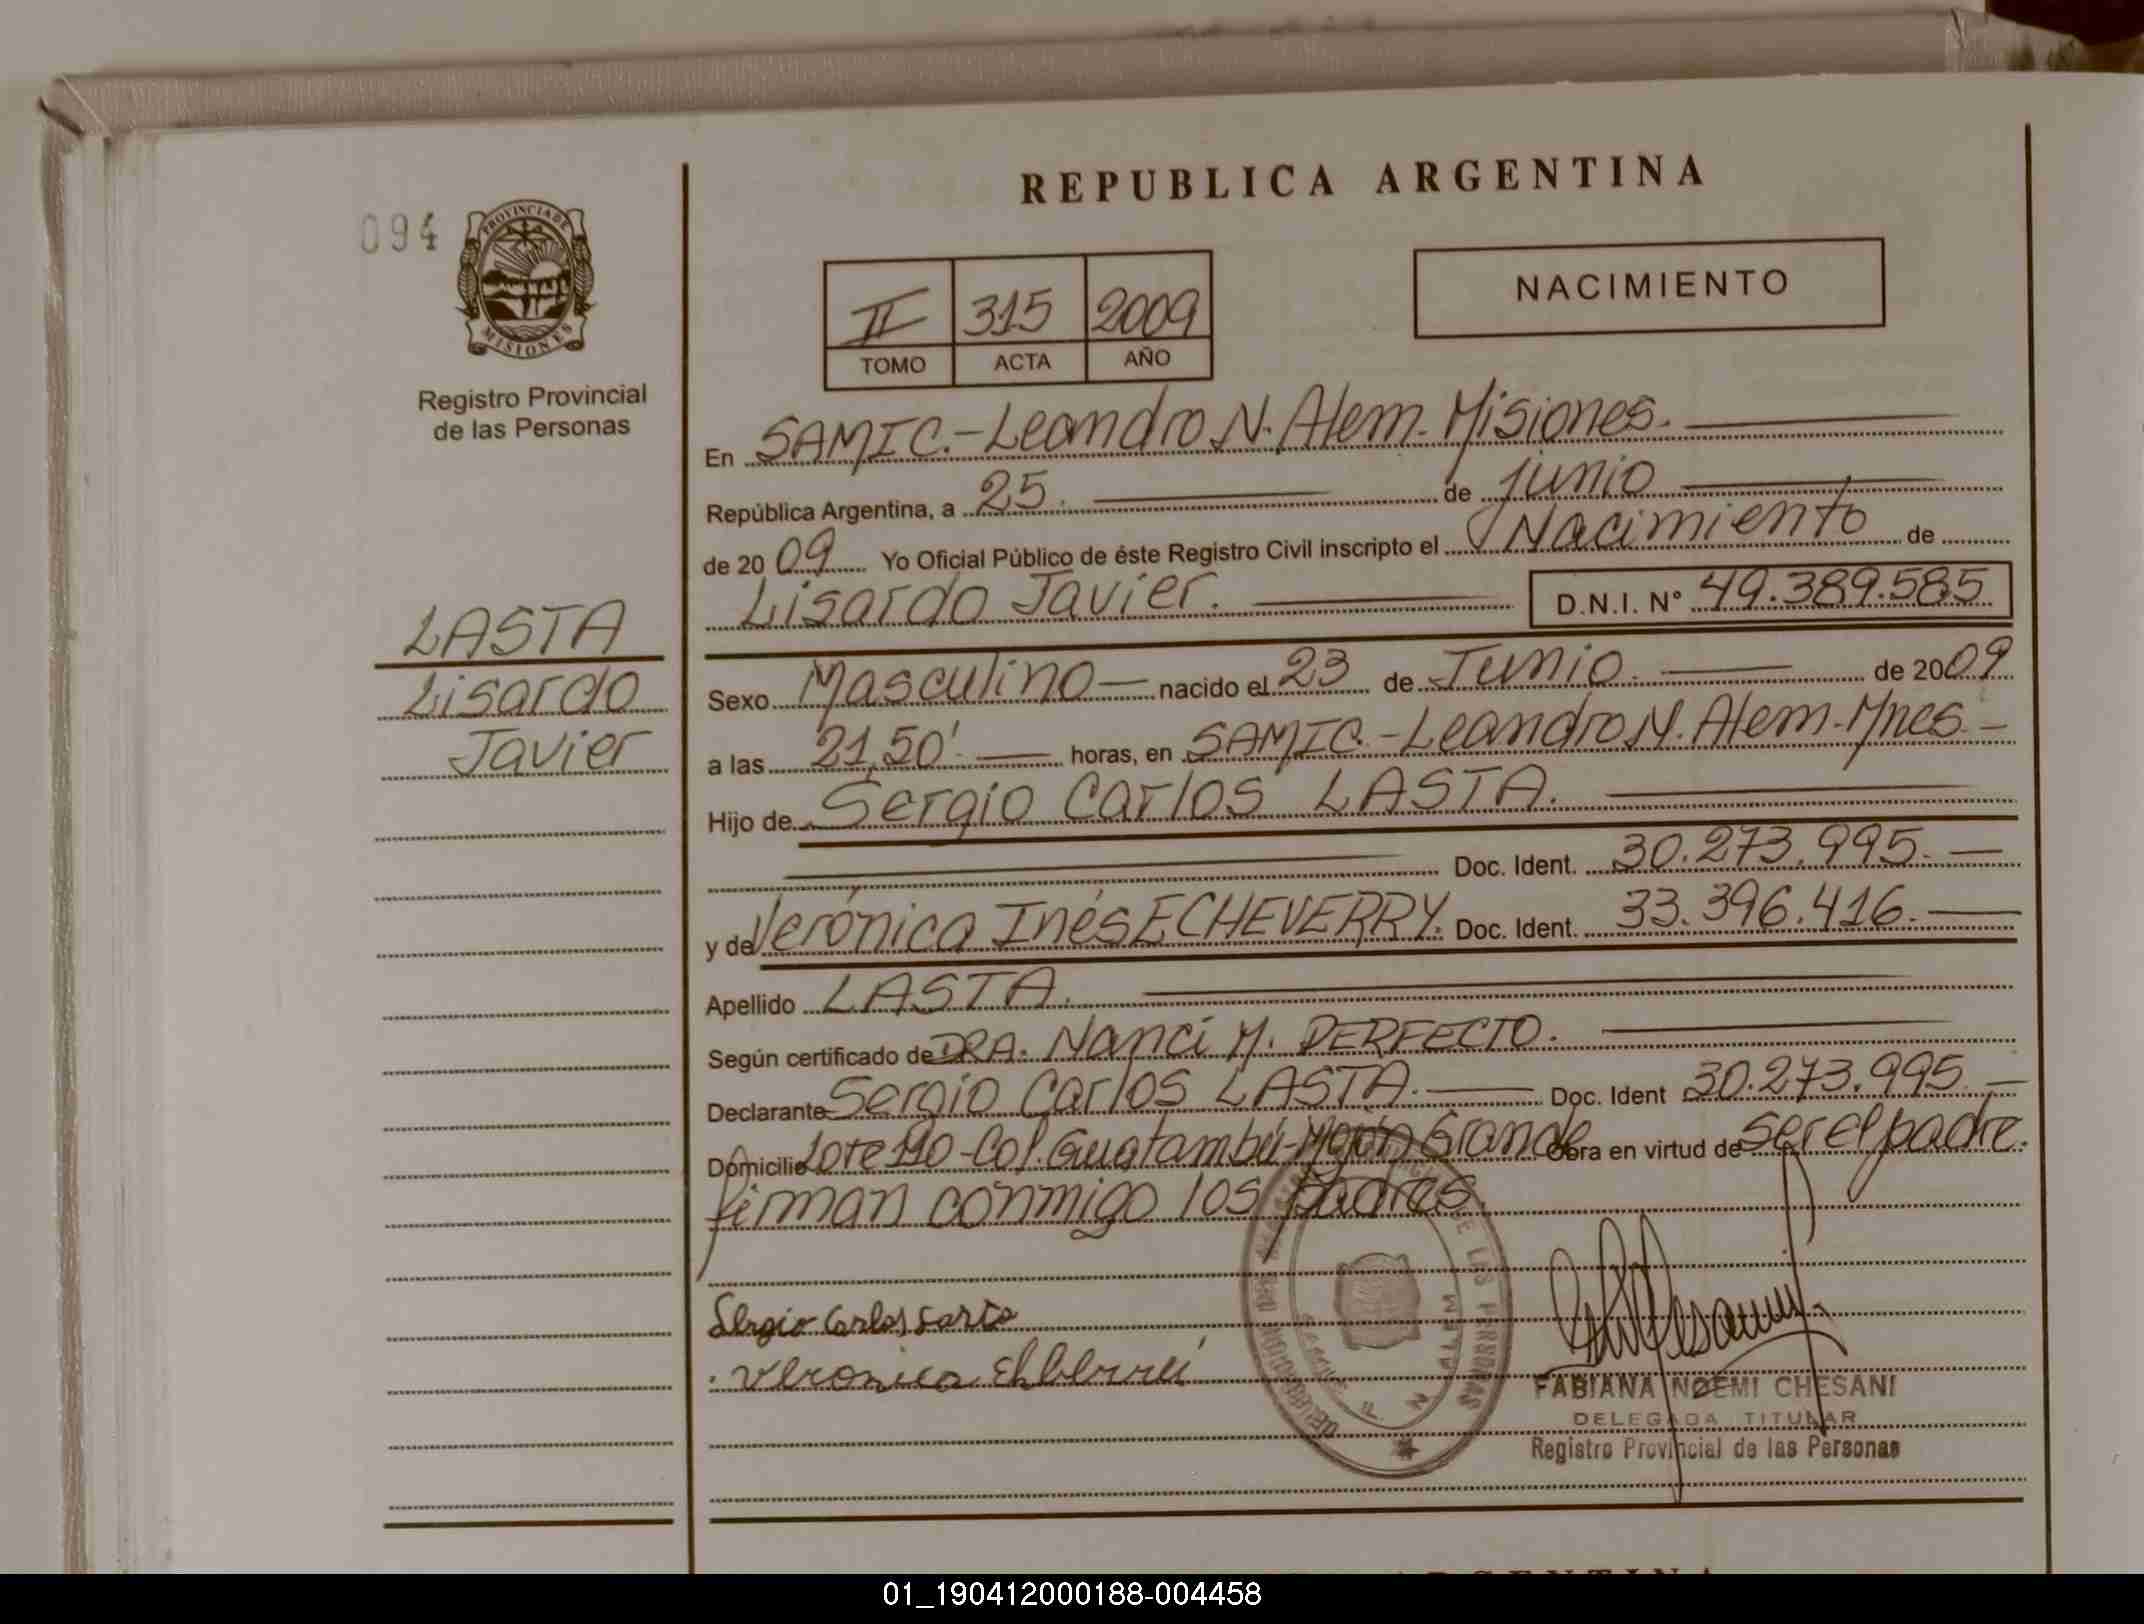 REPUBLICA ARGENTINA
094
PROVINCIA DE
MISIONES
Registro Provincial
de las Personas
II 315 2009
TOMO ACTA AÑO
NACIMIENTO
En SAMIC.-Leandro N. Alem-Misiones.
República Argentina, a 25. de junio
de 2009 Yo Oficial Público de éste Registro Civil inscripto el Nacimiento de
Lisardo Javier. D.N.I. Nº 49.389.585
LASTA
Lisardo
Javier
Sexo Masculino nacido el 23 de Junio. de 2009
a las 21,50' horas, en SAMIC.-Leandro N. Alem-Mnes-
Hijo de Sergio Carlos LASTA.
Doc. Ident. 30.273.995.
y de Verónica Inés ECHEVERRY. Doc. Ident. 33.396.416.
Apellido LASTA.
Según certificado de DRA. Nanci M. PERFECTO.
Declarante Sergio Carlos LASTA. Doc. Ident 30.273.995.
Domicilio Lote 190-Col. Guatambú-Mojón Grande Obra en virtud de ser el padre.
firman conmigo los padres.
DE LAS PERSONAS
Sergio Carlos Lasta
Veronica
FABIANA NOEMI CHESANI
DELEGADA TITULAR
Registro Provincial de las Personas
ARGENTINA
01_190412000188-004458